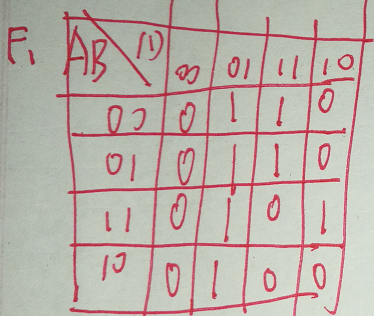 F₁ AB CD 00 01 11 10
00 0 1 1 0
01 0 1 1 0
11 0 1 0 1
10 0 1 0 0